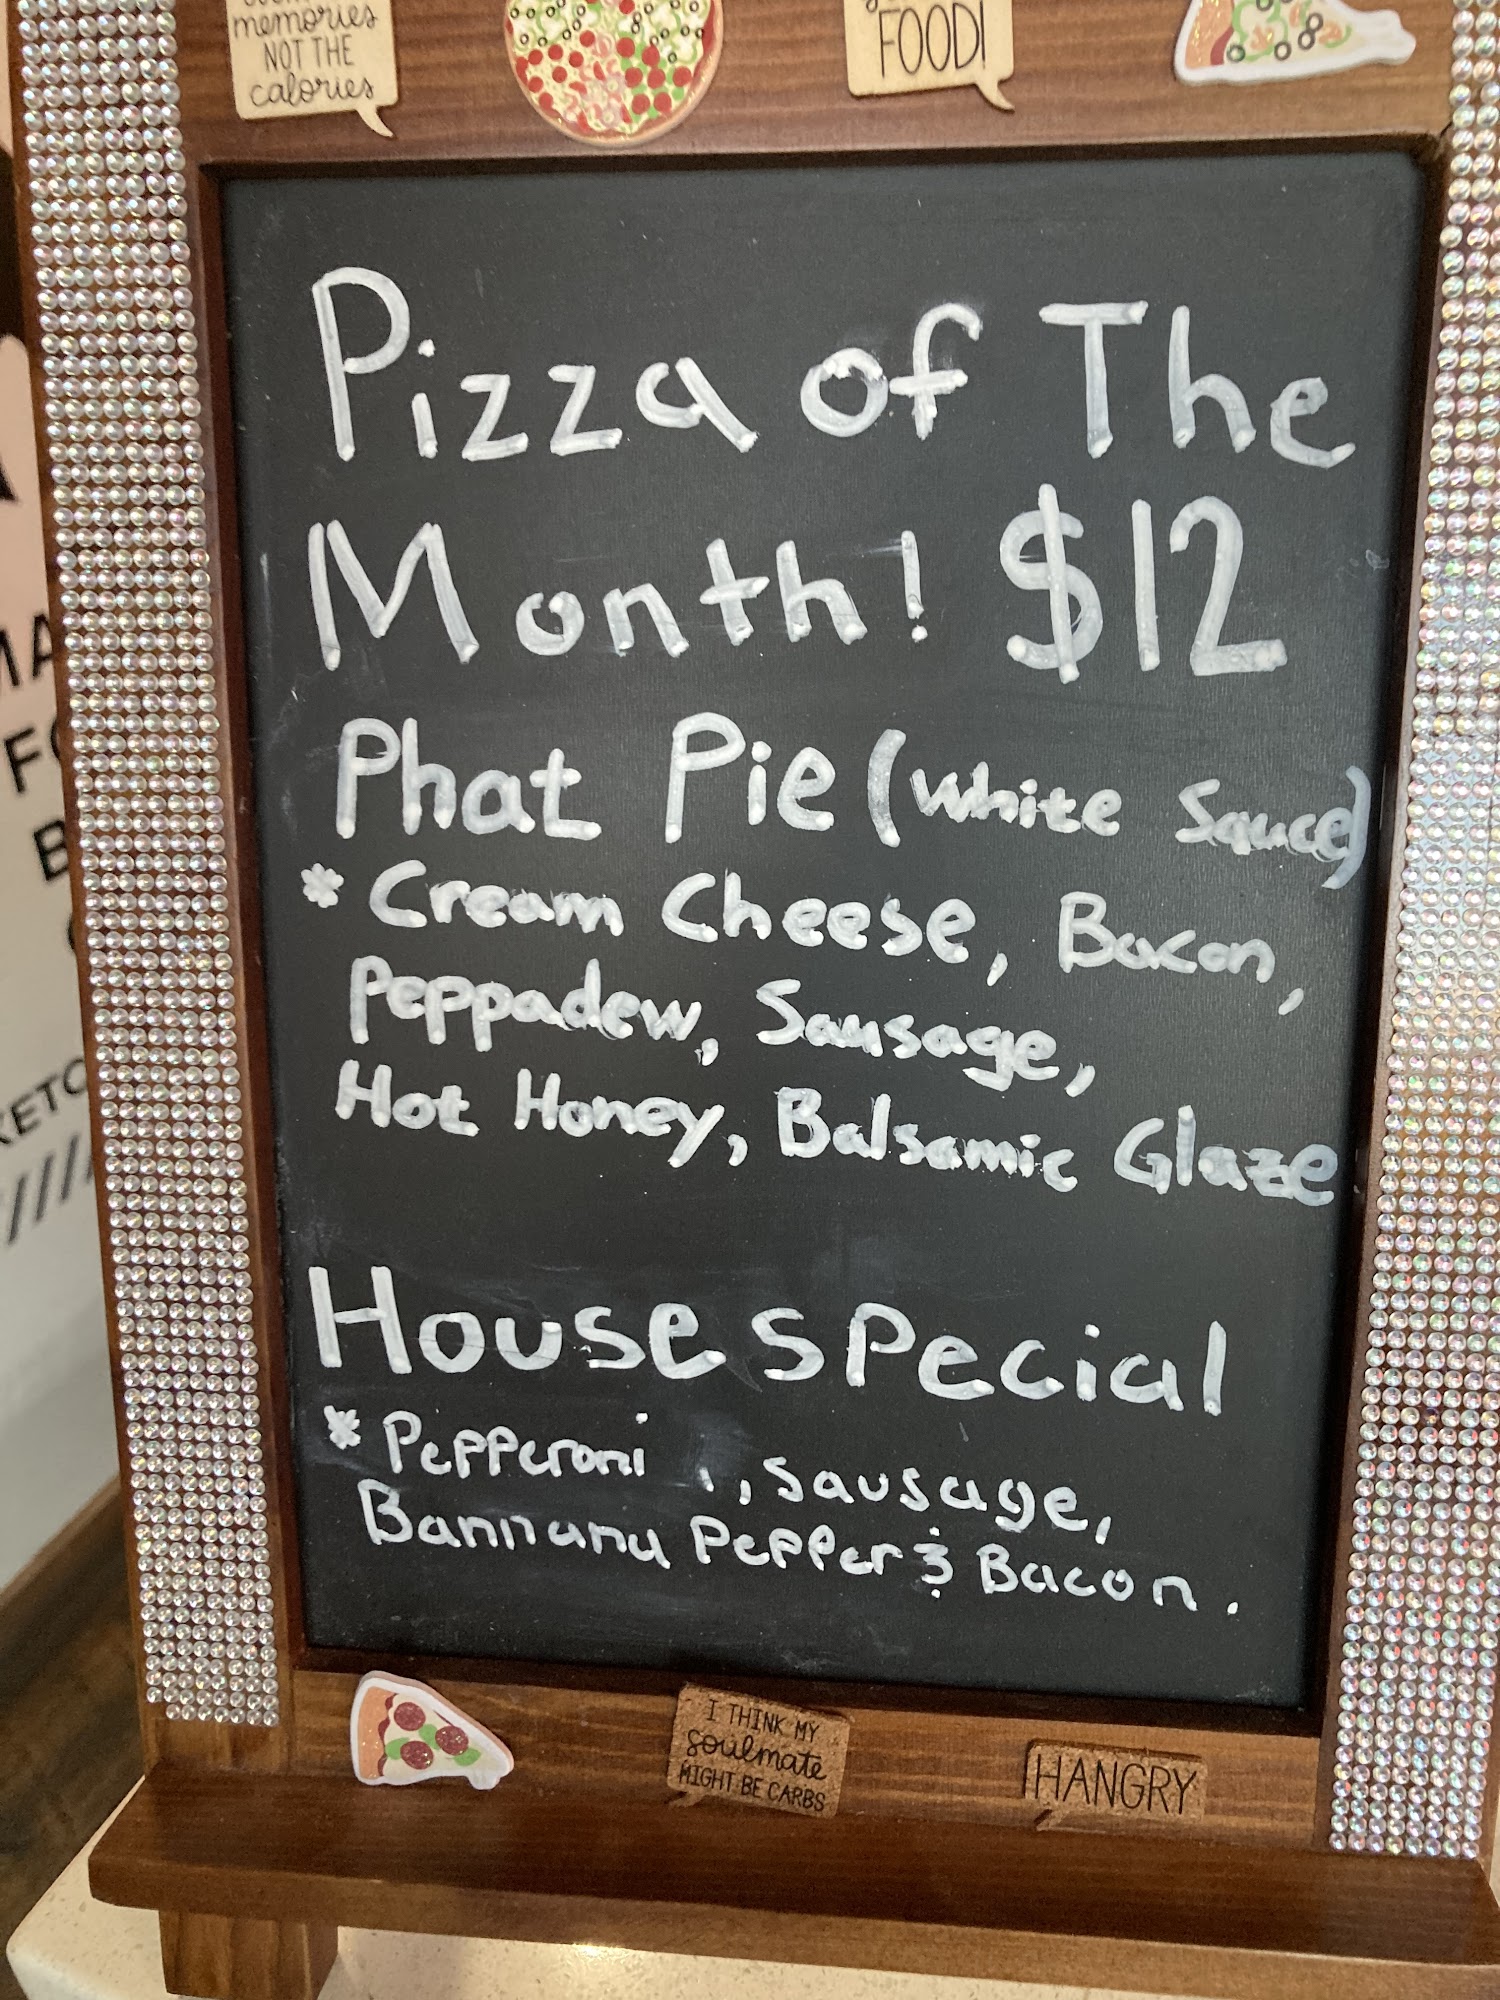 memories
NOT THE
calories
FOOD!
Pizza of The
Month! $12
Phat Pie (white Sauce)
* Cream Cheese, Bacon,
Peppadew, Sausage,
Hot Honey, Balsamic Glaze
House special
* Pepperoni , , sausage,
Bannana Pepper & Bacon.
I THINK MY
soulmate
MIGHT BE CARBS
HANGRY